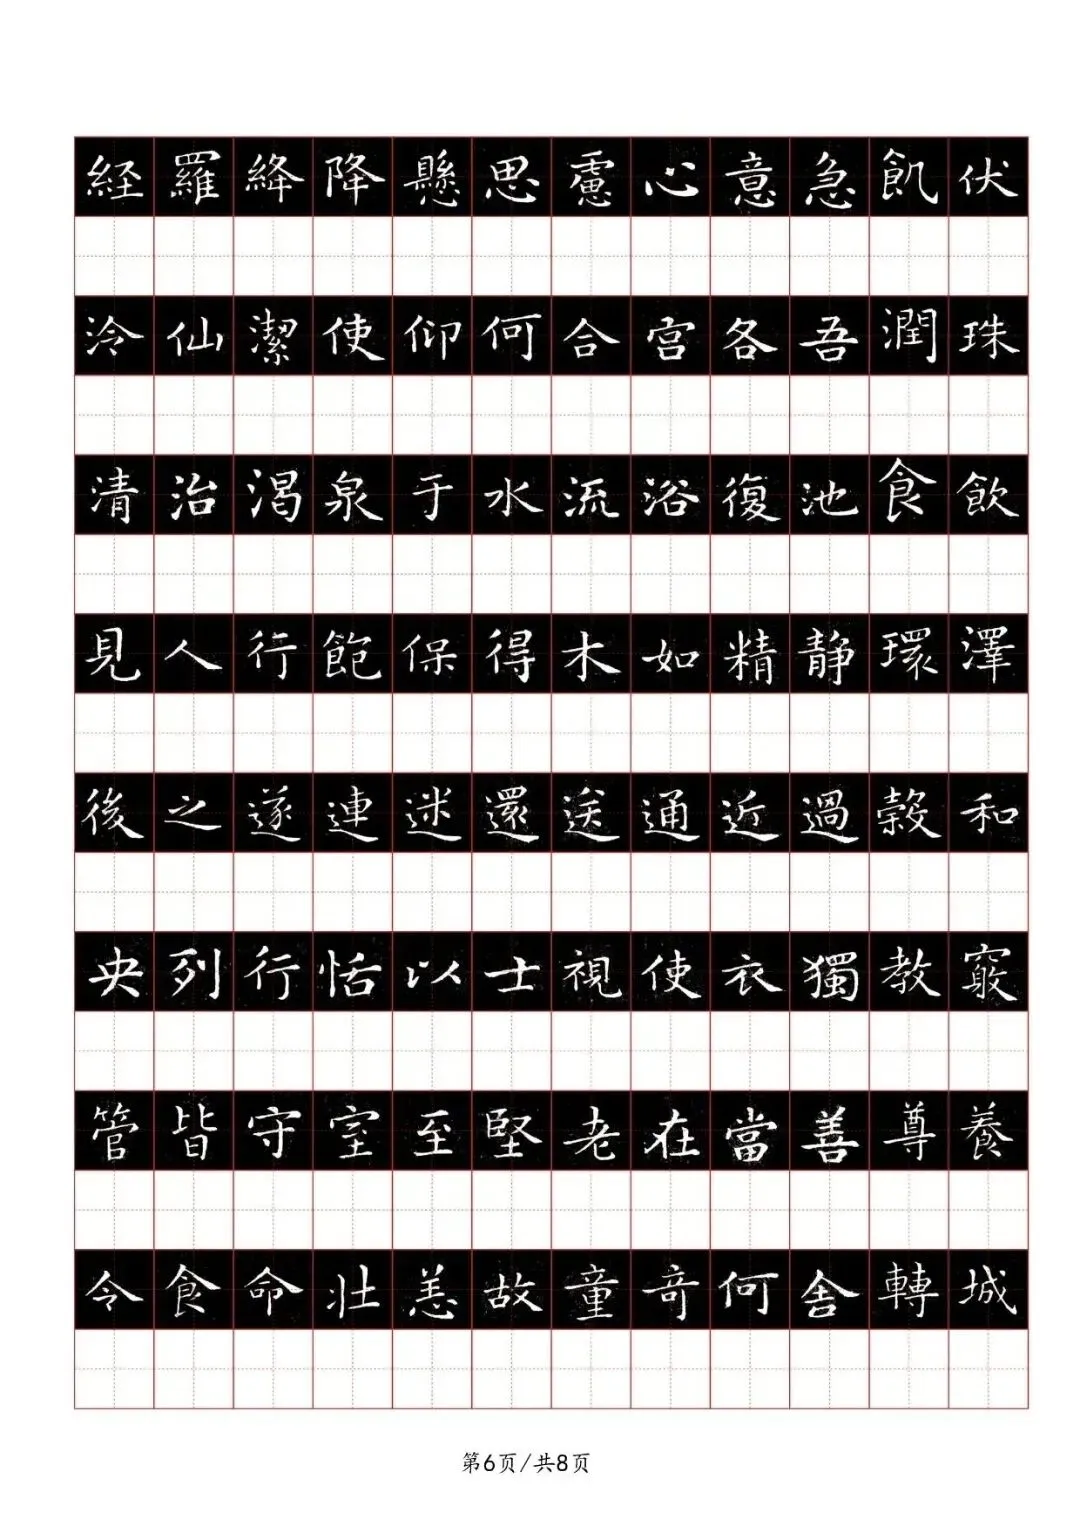 経羅絳降懸思慮心意急飢伏
泠仙潔使仰何合宫各吾潤珠
清治渴泉于水流浴復池食飲
見人行飽保得木如精静環澤
後之遂連迷還送通近過榖和
央列行恬以士視使衣獨教窮
管皆守室至堅老在當善尊養
令食命壯恙故童奇何舍轉城
第6页/共8页